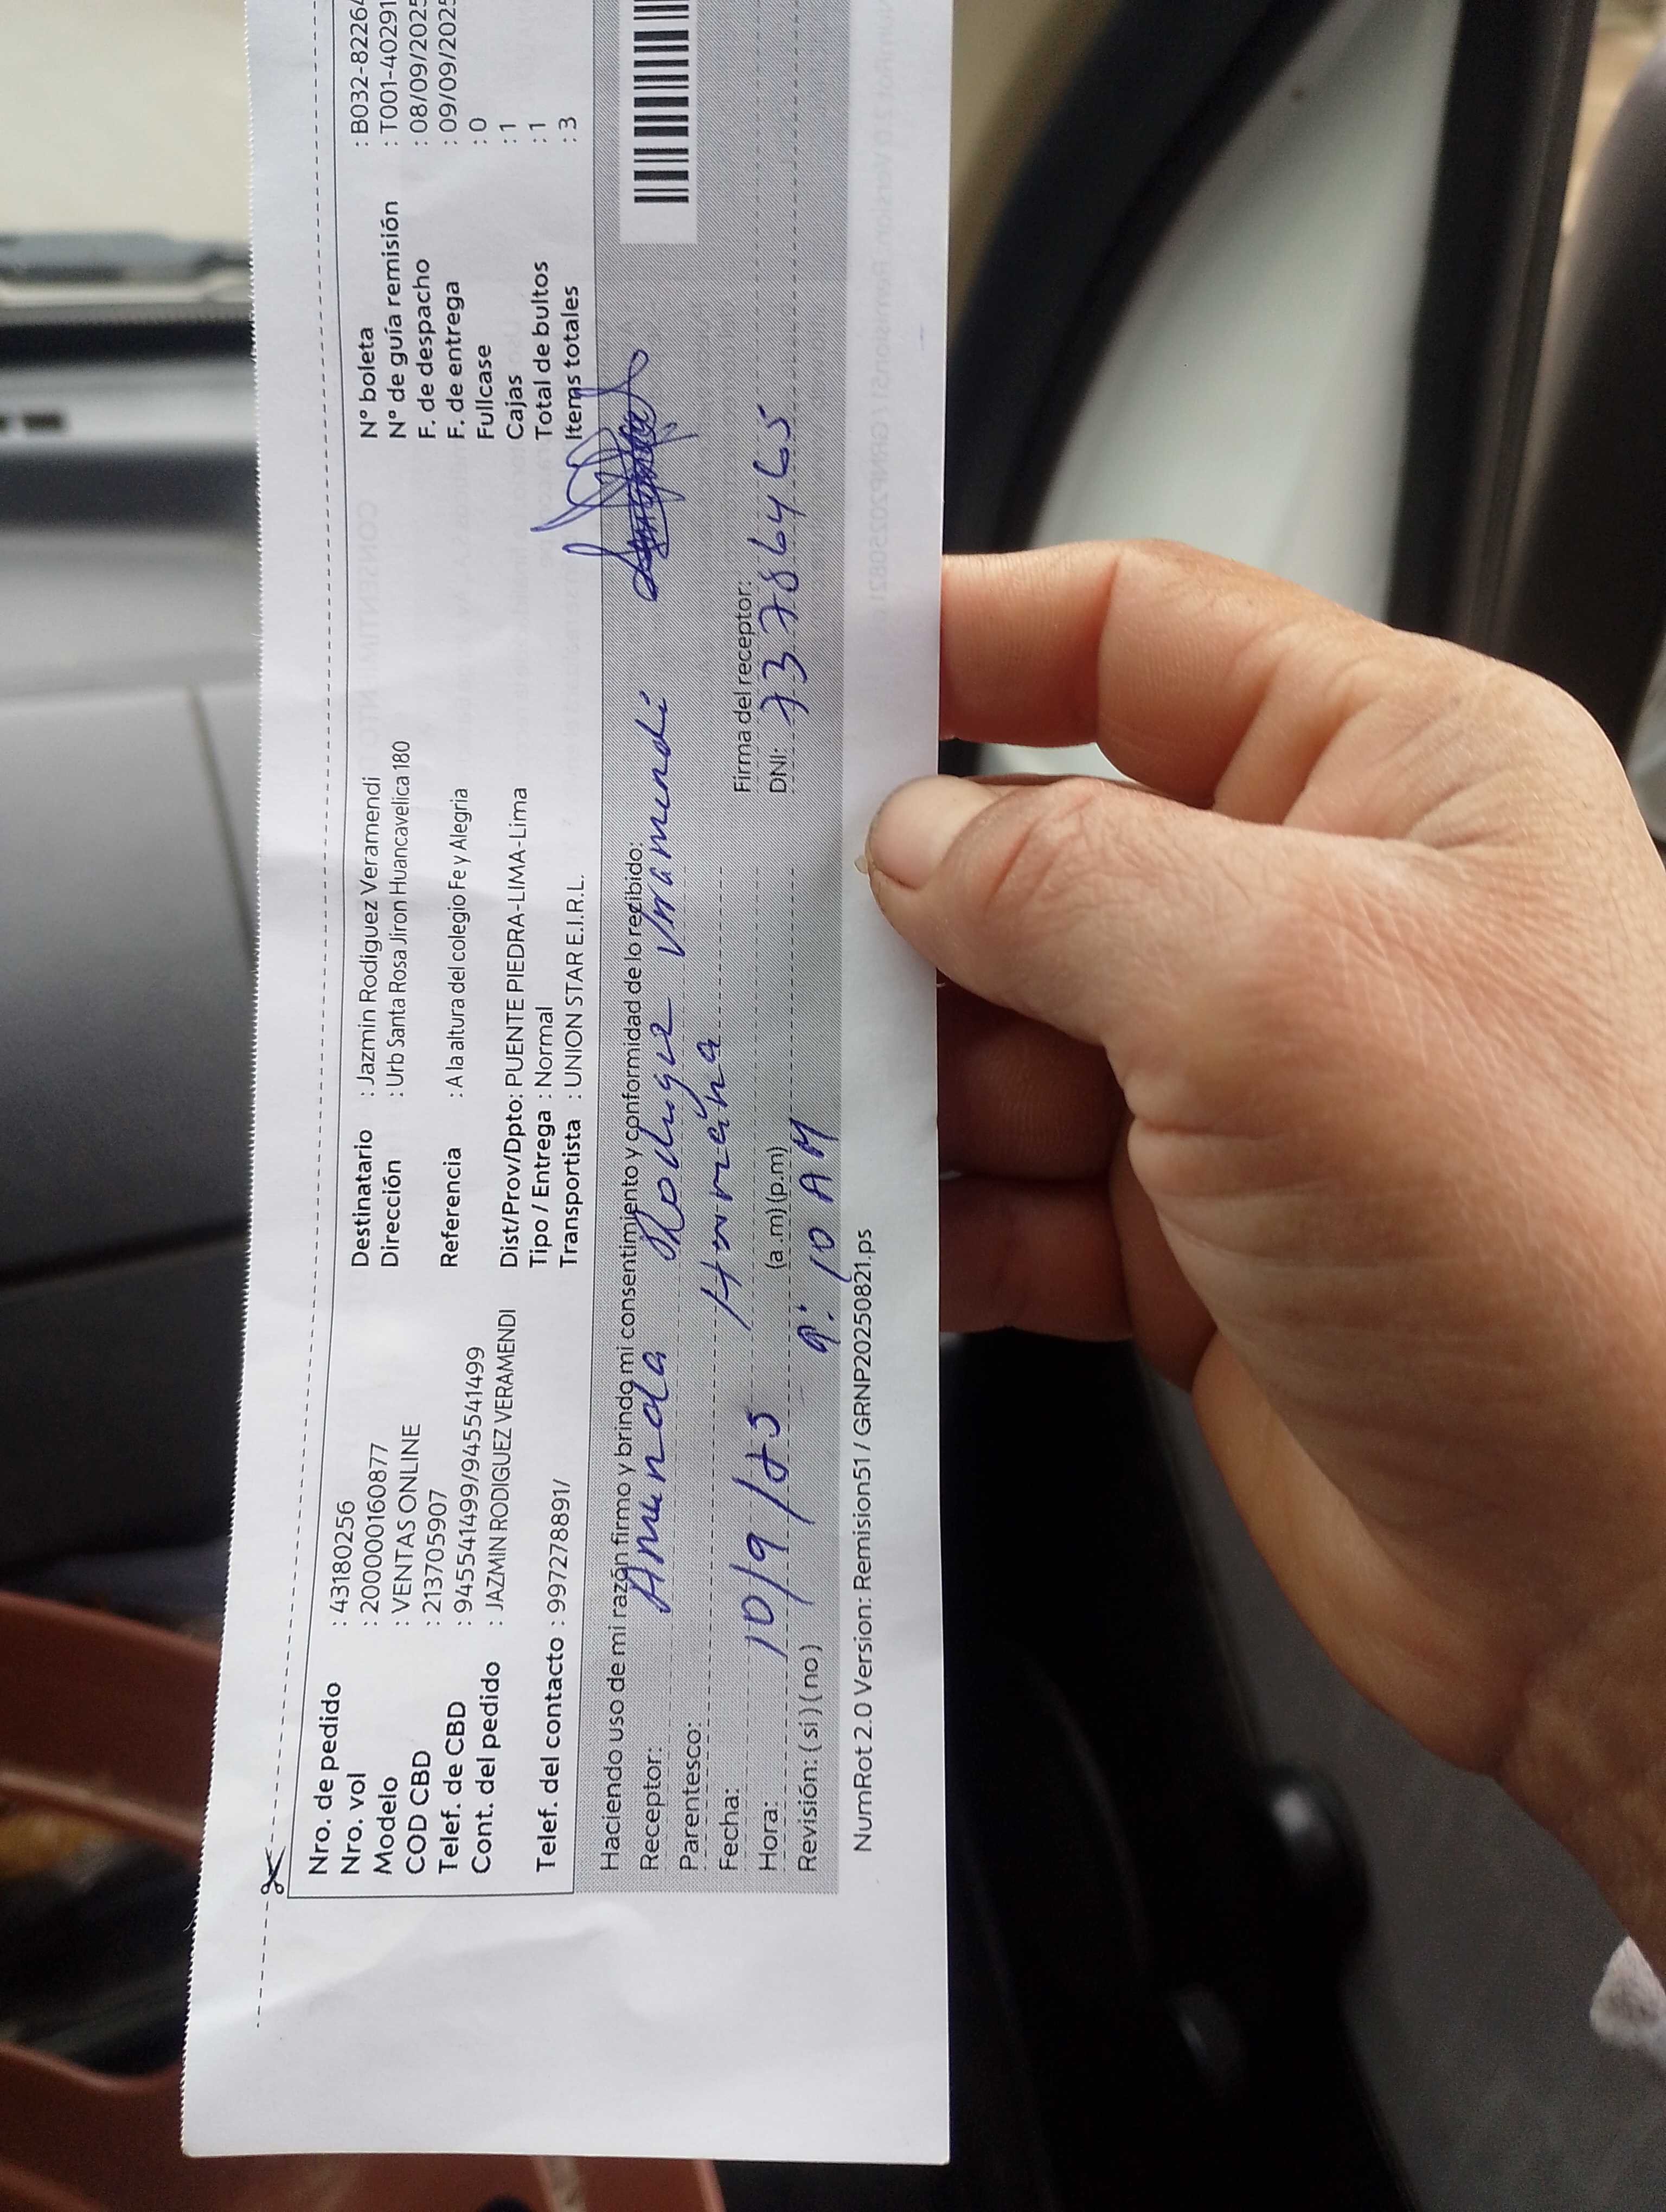 Nro. de pedido : 43180256
Nro. vol : 2000000160877
Modelo : VENTAS ONLINE
COD CBD : 213705907
Telef. de CBD : 945541499/945541499
Cont. del pedido : JAZMIN RODIGUEZ VERAMENDI
Telef. del contacto : 997278891/
Destinatario : Jazmin Rodiguez Veramendi
Dirección : Urb Santa Rosa Jiron Huancavelica 180
Referencia : A la altura del colegio Fe y Alegria
Dist/Prov/Dpto: PUENTE PIEDRA-LIMA-Lima
Tipo / Entrega : Normal
Transportista : UNION STAR E.I.R.L.
N° boleta : B032-82264
N° de guía remisión : T001-40291
F. de despacho : 08/09/2025
F. de entrega : 09/09/2025
Fullcase : 0
Cajas : 1
Total de bultos : 1
Items totales : 3
Haciendo uso de mi razón firmo y brindo mi consentimiento y conformidad de lo recibido:
Receptor: Amanda
Parentesco: Hermana
Fecha: 10/9/25
Firma del receptor:
Hora: (a .m) (p.m) 9:10 AM
DNI: 73786465
Revisión: ( si ) ( no )
NumRot 2.0 Version: Remision51 / GRNP20250821.ps